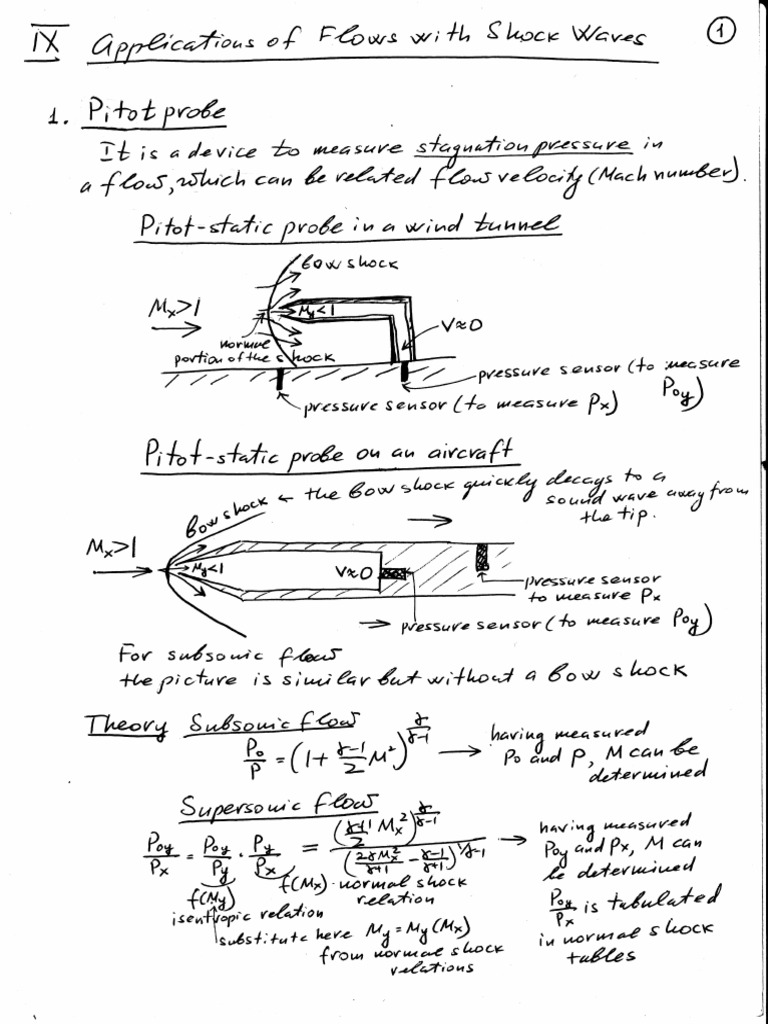 IX Applications of Flows with Shock Waves
1
1. Pitot probe
It is a device to measure stagnation pressure in
a flow, which can be related flow velocity (Mach number).
Pitot-static probe in a wind tunnel
bow shock
Mx>1
My<1
V≈0
normal
portion of the shock
pressure sensor (to measure
Poy)
pressure sensor (to measure Px)
Pitot-static probe on an aircraft
bow shock ← the bow shock quickly decays to a
sound wave away from
the tip.
Mx>1
My<1
V≈0
pressure sensor
to measure Px
pressure sensor (to measure Poy)
For subsonic flow
the picture is similar but without a bow shock
Theory Subsonic flow
Po/P = (1+ (γ-1)/2 M²)^(γ/(γ-1)) → having measured
Po and P, M can be
determined
Supersonic flow
Poy/Px = Poy/Py · Py/Px = ((γ+1)/2 Mx²)^(γ/(γ-1)) / (2γMx²/(γ+1) - (γ-1)/(γ+1))^(1/(γ-1)) → having measured
Poy and Px, M can
be determined
f(My) f(Mx) - normal shock
relation
isentropic relation
substitute here My = My(Mx)
from normal shock
relations
Poy/Px is tabulated
in normal shock
tables